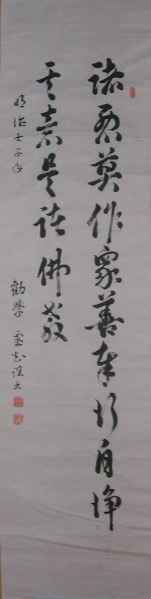 諸悪莫作衆善奉行自浄
其意是諸佛教
明治壬子年
勧學